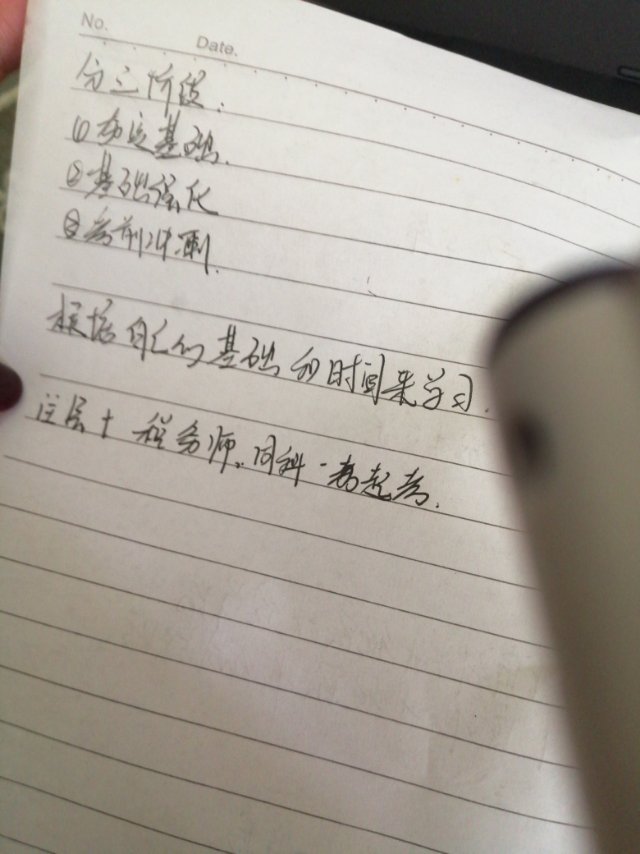 No.
Date.
分三阶段:
①夯定基础.
②基础强化
③考前冲刺.
根据自己的基础和时间来学习.
注会+税务师.同科一起考.